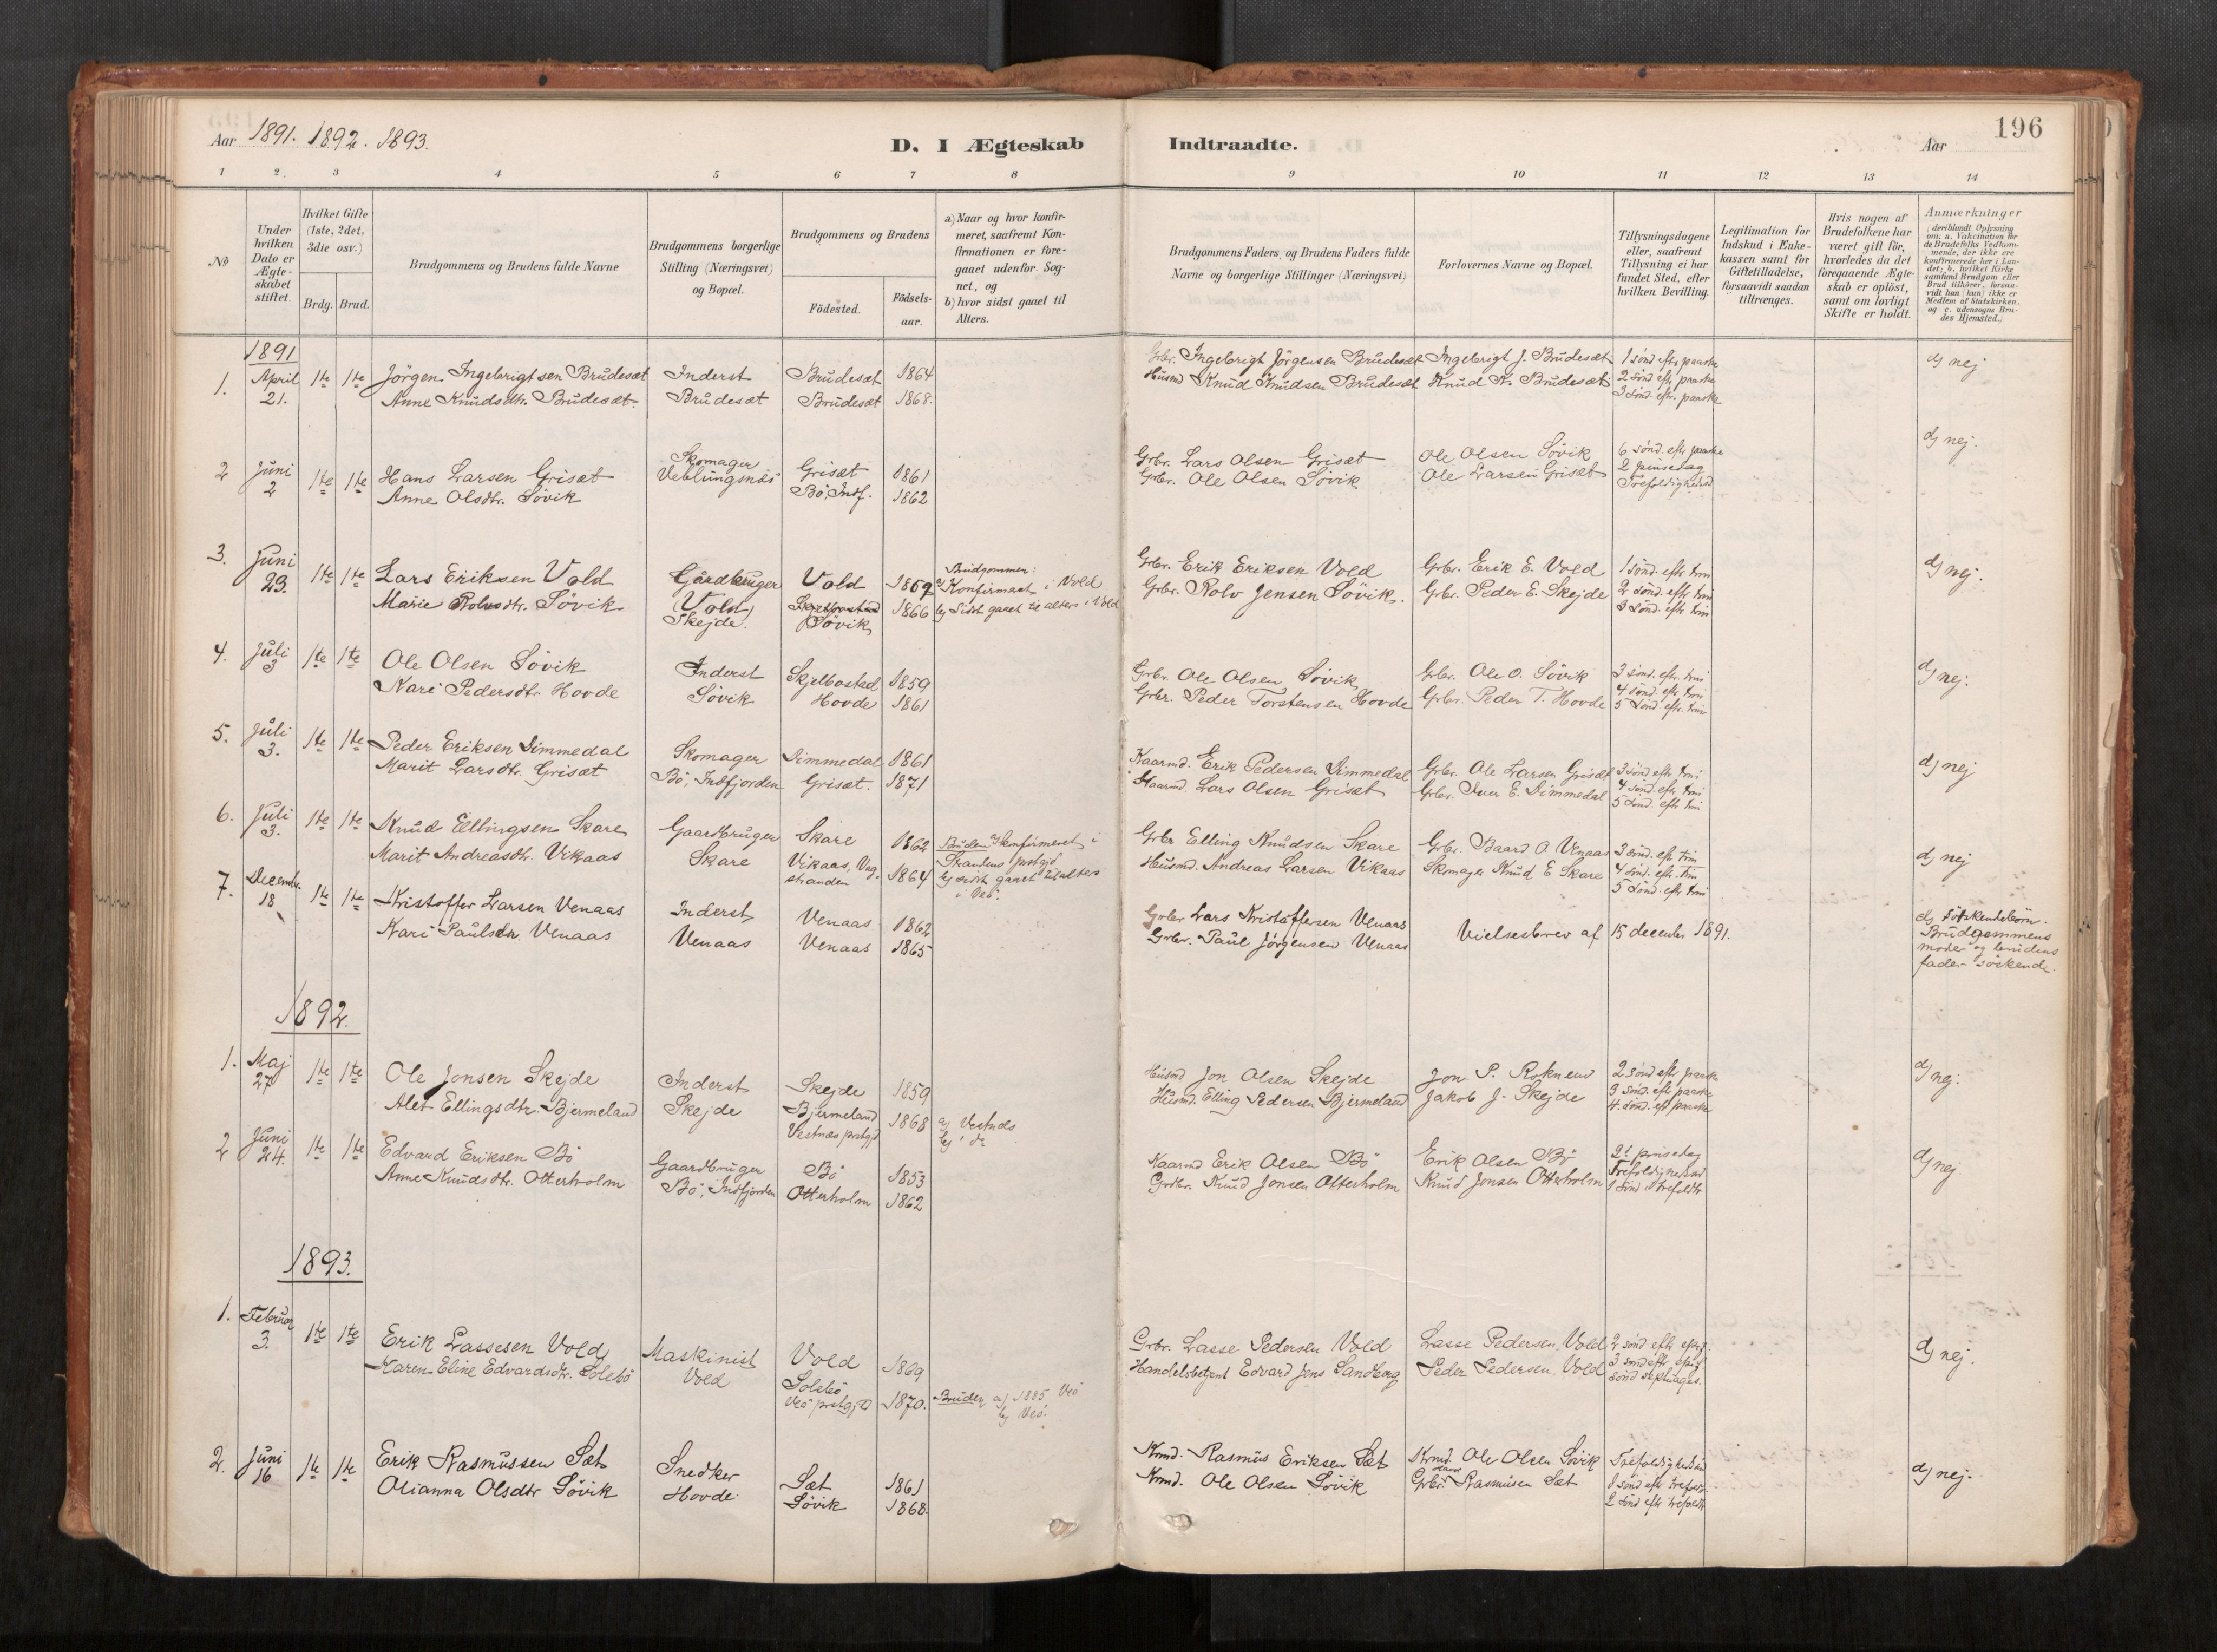 196
Aar 1891. 1892. 1893.
D. I Ægteskab Indtraadte.
Aar
1 2. 3 4 5 6 7 8 9 10 11 12 13 14
No
Under hvilken Dato er Ægte-skabet stiftet.
Hvilket Gifte (1ste, 2det, 3die osv.)
Brdg. Brud.
Brudgommens og Brudens fulde Navne
Brudgommens borgerlige Stilling (Næringsvei) og Bopæl.
Brudgommens og Brudens
Födested.
Födsels-aar.
a) Naar og hvor konfir-meret, saafremt Kon-firmationen er fore-gaaet udenfor Sog-net, og
b) hvor sidst gaaet til Alters.
Brudgommens Faders og Brudens Faders fulde Navne og borgerlige Stillinger (Næringsvei)
Forlovernes Navne og Bopæl.
Tillysningsdagene eller, saafremt Tillysning ei har fundet Sted, efter hvilken Bevilling.
Legitimation for Indskud i Enke-kassen samt for Giftetilladelse, forsaavidt saadan tiltrænges.
Hvis nogen af Brudefolkene har været gift för, hvorledes da det foregaaende Ægte-skab er oplöst, samt om lovligt Skifte er holdt.
Anmærkninger (deriblandt Oplysning om: a. Vakcination for de Brudefolks Vedkom-mende, der ikke ere konfirmerede her i Lan-det; b. hvilket Kirke samfund Brudgom eller Brud tilhörer, forsaa-vidt han (hun) ikke er Medlem af Statskirken. og c. udensogns Bru-des Hjemsted.)
1891
1. April 1te 1te Jörgen Ingebrigtsen Brudesæt Inderst Brudesæt 1864 Grbr. Ingebrigt Jörgensen Brudesæt Ingebrigt J. Brudesæt 1 sönd efter paaske d) nej
21. Anne Knudsdtr. Brudesæt. Brudesæt Brudesæt 1868. Husmd Knud Knudsen Brudesæt Knud K. Brudesæt 2 sönd eftr paaske
3 sönd. eftr. paaske
2 Juni 1te 1te Hans Larsen Grisæt Skomager Grisæt 1861 Grbr. Lars Olsen Grisæt Ole Olsen Sövik 6 sönd. eftr paaske d) nej.
2 Anne Olsdtr. Sövik Veblungsnæs Bö, Indf. 1862 Grbr. Ole Olsen Sövik Ole Larsen Grisæt 2 pinsedag
3. Juni 1te 1te Lars Eriksen Vold Gårdbruger Vold 1869 Brudgommen: a) Konfirmert i Vold Grbr. Erik Eriksen Vold Grbr. Erik E. Vold 1 sönd. eftr trin d) nej.
23. Marie Rolvsdtr. Sövik Vold Sövik 1866 b) Sidst gaaet til alters i Vold Grbr. Rolv Jensen Sövik. Grbr. Peder E. Skejde 2 sönd. eftr trin
Skejde. 3 sönd. eftr trin
4. Juli 1te 1te Ole Olsen Sövik Inderst Skjelbostad 1859 Grbr. Ole Olsen Sövik Grbr. Ole O. Sövik 3 sönd. eftr. trin d) nej.
3 Kari Pedersdtr. Hovde Sövik Hovde 1861 Grbr. Peder Torstensen Hovde Grbr. Peder T. Hovde 4 sönd. eftr trin
5 sönd. eftr. trin
5. Juli 1te 1te Peder Eriksen Dimmedal Skomager Dimmedal 1861 Kaarmd. Erik Pedersen Dimmedal Grbr. Ole Larsen Grisæt 3 sönd. eftr trin d) nej
3. Marit Larsdtr. Grisæt Bö, Indfjorden Grisæt. 1871 Kaarmd. Lars Olsen Grisæt Grbr. Iver E. Dimmedal 4 sönd. eftr trin
5 sönd. eftr trin
6. Juli 1te 1te Knud Ellingsen Skare Gaardbruger Skare 1862 Bruden a) konfirmeret i Grbr Elling Knudsen Skare Grbr. Baard O. Venaas 3 sönd. eftr trin d) nej
3. Marit Andreasdtr. Vikaas Skare Vikaas, Vaagstranden 1864 Strandens prstgjd b) sidst gaaet til alters i Veö. Husmd. Andreas Larsen Vikaas Skomager Knud E Skare 4 sönd. eftr trin
5 sönd. eftr trin
7. Decembr. 1te 1te Kristoffer Larsen Venaas Inderst Venaas 1862 Grbr Lars Kristoffersen Venaas Vielsesbrev af 15 decembr 1891. d) Söskendebörn.
18 Kari Paulsdtr. Venaas Venaas Venaas 1865 Grbr. Paul Jörgensen Venaas Brudgommens moder og brudens fader söskende.
1892.
1. Maj 1te 1te Ole Jonsen Skejde Inderst Skejde 1859 Husmd Jon Olsen Skejde Jon P. 2 sönd eftr paaske d) nej.
27 Alet Ellingsdtr Bjermeland Skejde Bjermeland Vestnæs prstgjd 1868 a) Vestnæs b) do Husmd. Elling Pedersen Bjermeland Jakob J. Skejde 3 sönd. eftr paaske
4. sönd. eft paaske
2 Juni 1te 1te Edvard Eriksen Bö Gaardbruger Bö 1853 Kaarmd Erik Olsen Bö Erik Olsen Bö 2. pinsedag d) nej.
24. Anne Knudsdtr. Otterholm Bö, Indfjorden Otterholm 1862 Grdbr. Knud Jonsen Otterholm Knud Jonsen Otterholm
1893.
1. Februar 1te 1te Erik Lassesen Vold Maskinist Vold 1869 Grbr. Lasse Pedersen Vold Lasse Pedersen Vold 2 sönd eftr d) nej.
3. Karen Eline Edvardsdtr. Solebö Vold Solebö Veö prstgjd 1870. Bruden a) 1885 Veö b) Veö. Handelsbetjent Edvard Jens Sandberg Peder Pedersen Vold 3 sönd eftr
sönd septuages.
2. Juni 1te 1te Erik Rasmussen Sæt Snedker Sæt 1861 Kmd. Rasmus Eriksen Sæt Krmd. Ole Olsen Sövik d) nej.
16 Olianna Olsdtr Sövik Hovde Sövik 1868. Kmd. Ole Olsen Sövik Grbr. Rasmusen Sæt 1 sönd eftr trefoldh
2 sönd eftr trefoldh